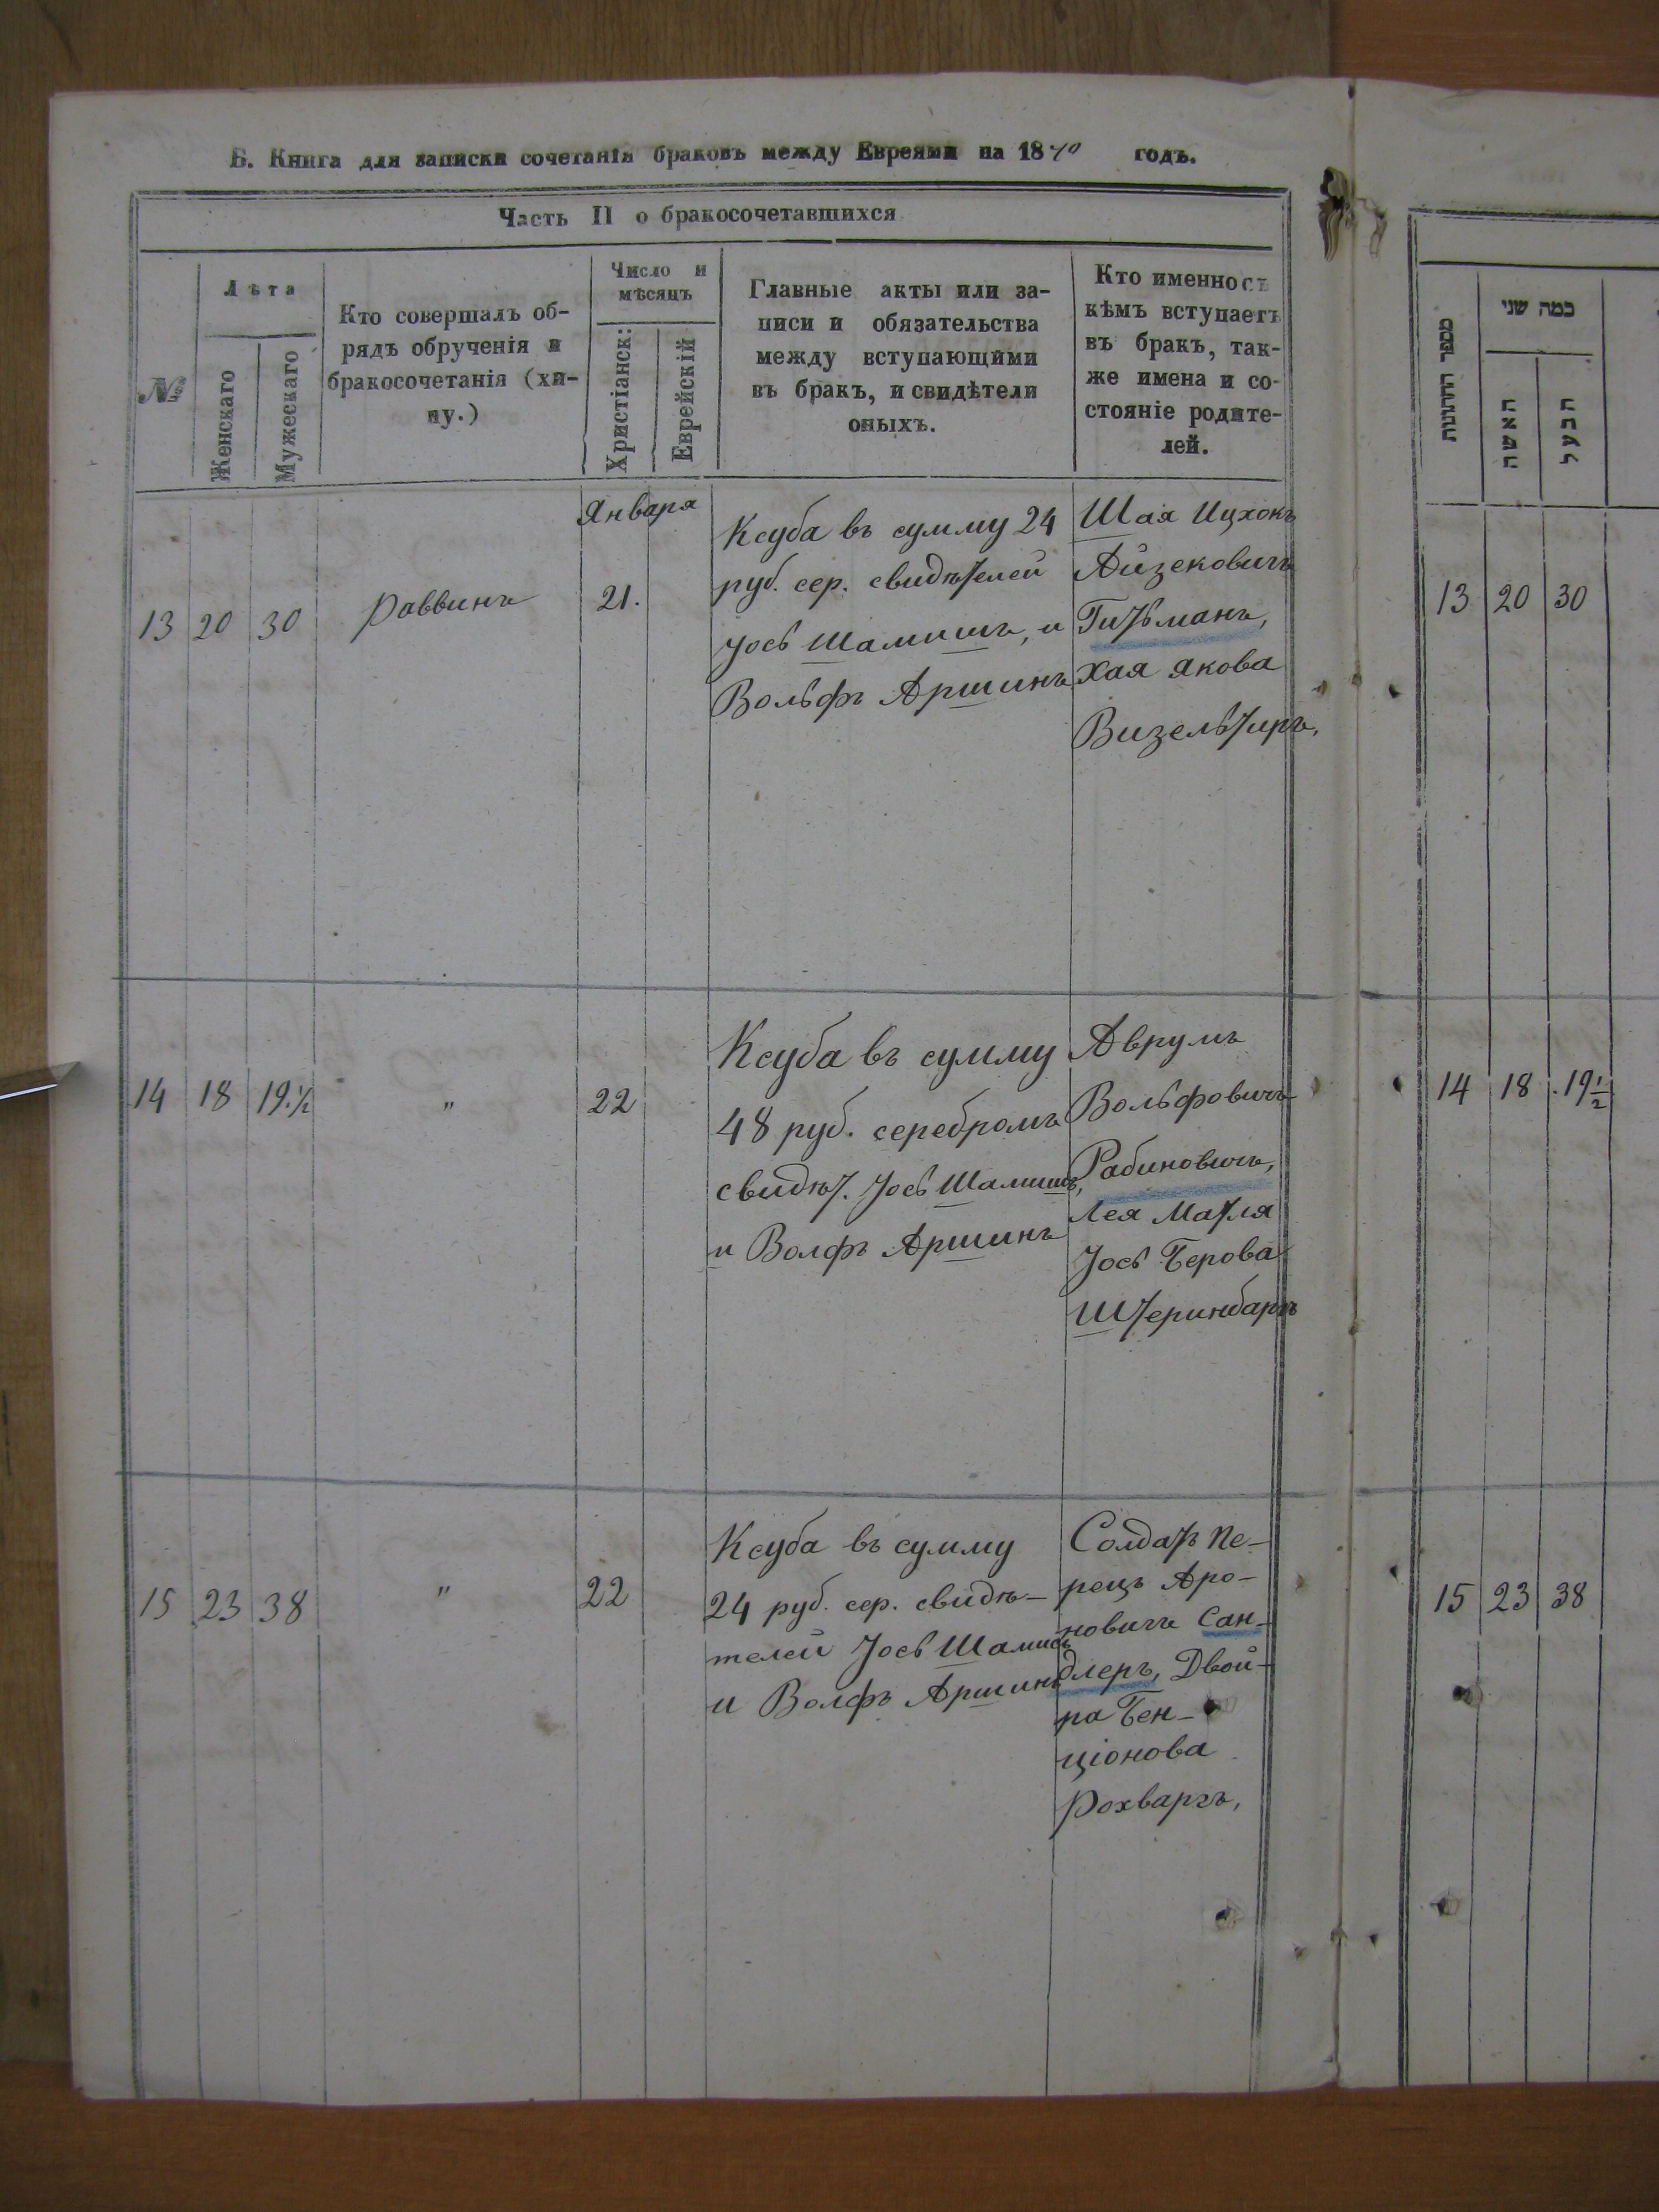 Б. Книга для записки сочетанія браковъ между Евреями на 1870 годъ.
Часть II о бракосочетавшихся
№
Лѣта
Женскаго
Мужескаго
Кто совершалъ об-
рядъ обрученія и
бракосочетанія (хи-
пу.)
Число и
мѣсяцъ
Христіанск:
Еврейскій
Главные акты или за-
писи и обязательства
между вступающими
въ бракъ, и свидѣтели
оныхъ.
Кто именно съ
кѣмъ вступаетъ
въ бракъ, так-
же имена и со-
стояніе родите-
лей.
13 20 30
Раввинъ
Января
21.
Ксуба въ сумму 24
руб. сер. свидѣтелей
Іось Шамишъ, и
Вольфъ Аршинъ
Шая Ицхокъ
Айзековичъ
Гитьманъ,
Хая Якова
Визельтиръ,
14 18 19.½
"
22
Ксуба въ сумму
48 руб. серебромъ
свидѣт. Іось Шамишъ,
и Волфъ Аршинъ
Аврумъ
Вольфовичъ
Рабиновичъ,
Лея Матля
Іось Берова
Штеринбаргъ
15 23 38
"
22
Ксуба въ сумму
24 руб. сер. свидѣ-
телей Іось Шамишъ
и Волфъ Аршинъ
Солдатъ Пе-
рецъ Аро-
новичъ Сан-
длеръ, Двой-
ра Бен-
ціонова
Рохваргъ,
מספר החתונות
כמה שני
האשה
הבעל
13 20 30
14 18 .19½
15 23 38